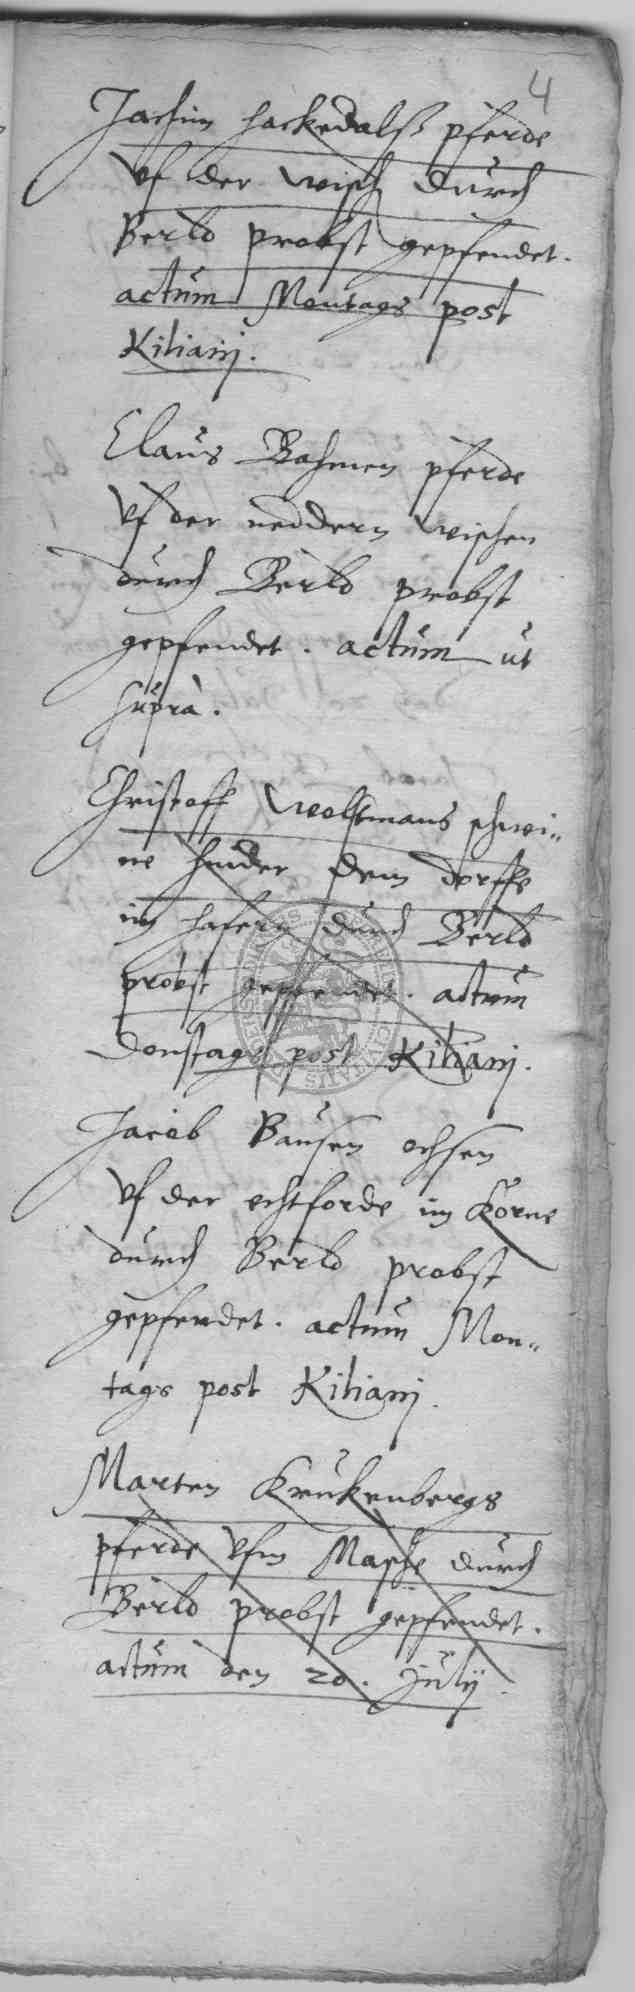 4
Jachim Hackedalß pferde
Vf der wisch durch
Berld probst gepfendet.
actum Montags post
Kilianj.
Claus Bahmen pferde
Vf der neddern wischen
durch Berld probst
gepfendet. actum ut
supra.
Christoff Woltmans schwei„
ne hinder dem dorffe
im hafern durch Berld
probst gepfendet. actum
Donstags post Kilianj.
Jacob Bausen ochsen
Vf der echtforde im Korne
durch Berld probst
gepfendet. actum Mon„
tags post Kilianj.
Marten Krukenbergs
pferde Vfm Masche durch
Berld probst gepfendet.
actum den 20. Julij.